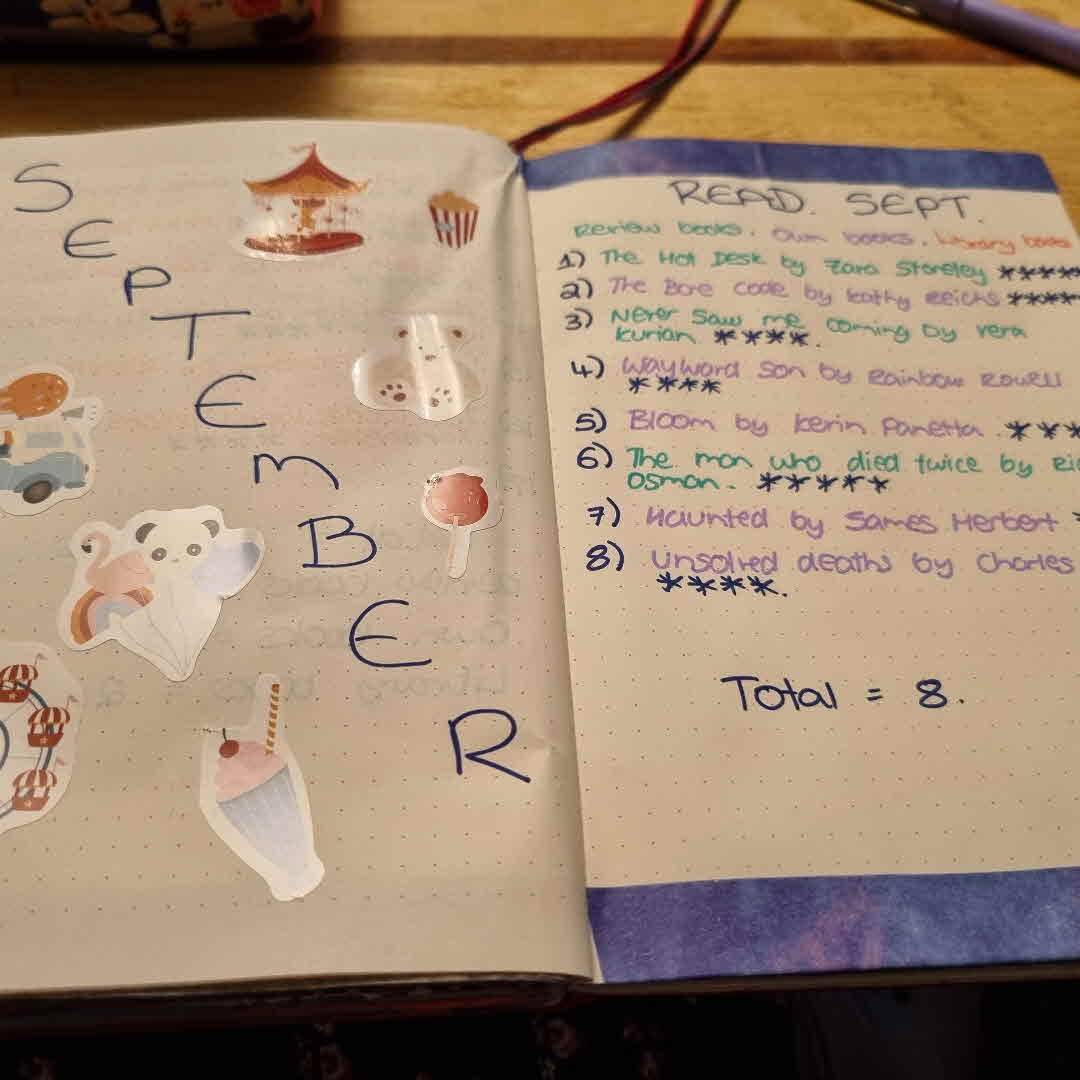 S
E
P
T
E
M
B
E
R
READ. SEPT.
Review books. Own books. Library books
1) The Hot Desk by Zara Stoneley *****
2) The Bone Code by Kathy Reichs ****
3) Never Saw me coming by vera
kurian ****.
4) Wayward Son by Rainbow Rowell
****
5) Bloom by Kevin Panetta. ***
6) The man who died twice by Ric
Osman. *****
7) Haunted by James Herbert
8) Unsolved deaths by Charles
****.
Total = 8.